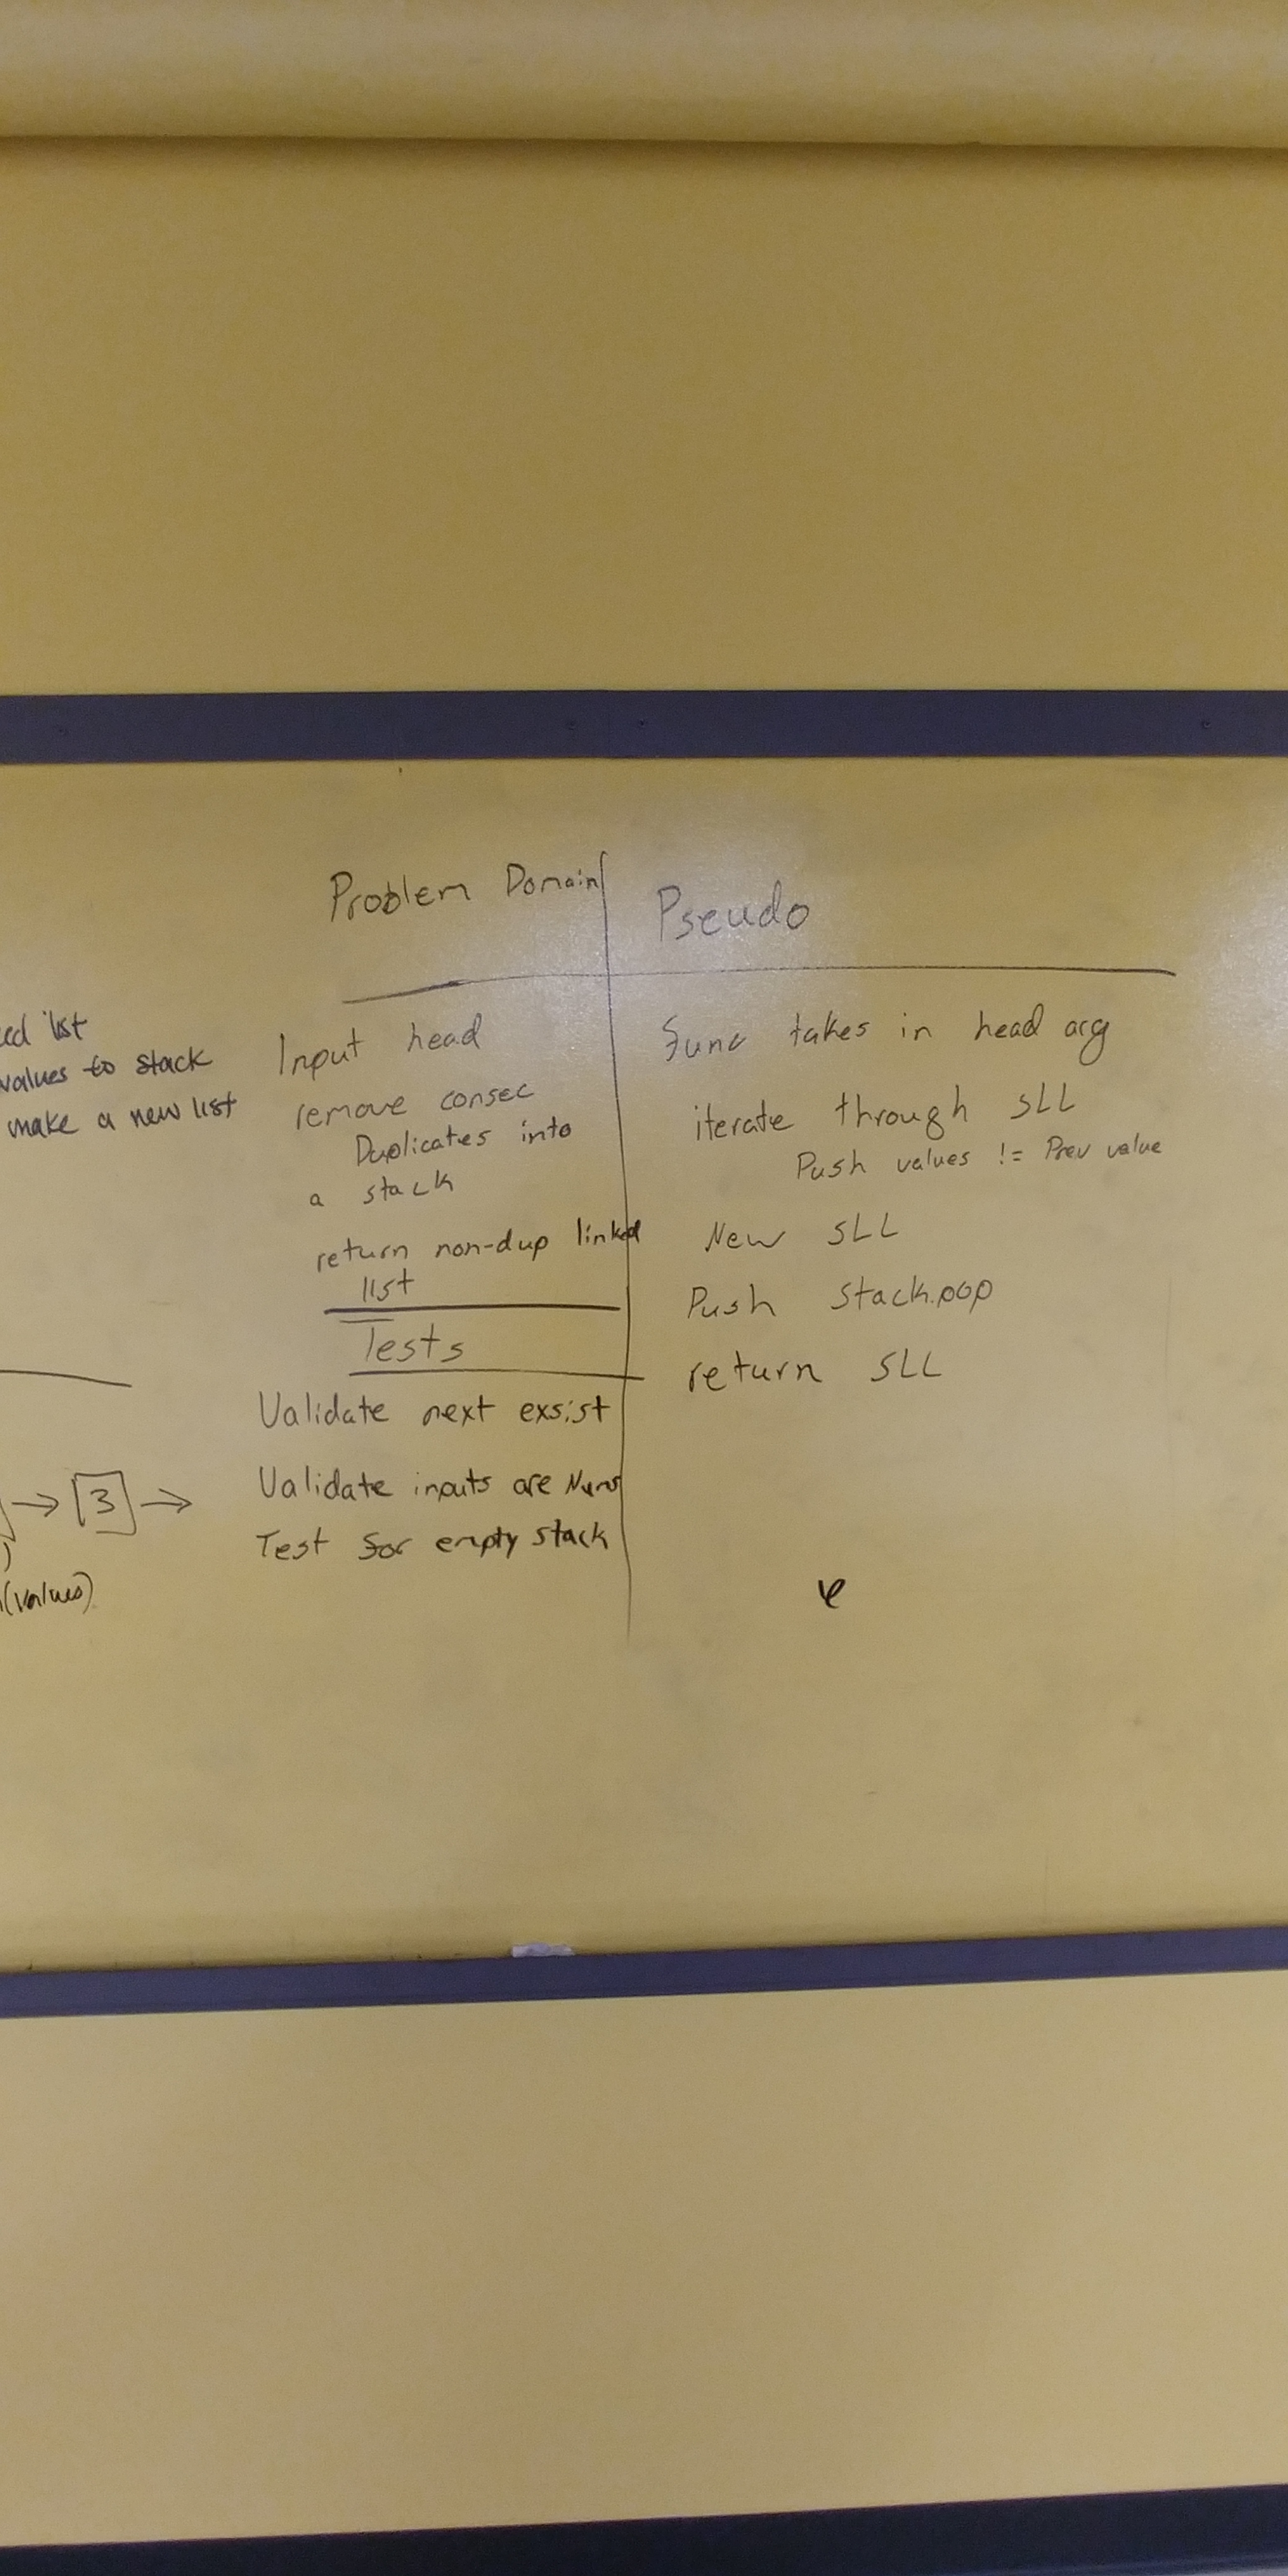 list
values to stack
make a new list
[3]
(values)
Problem Domain
Input head
remove consec
Duplicates into
a stack
return non-dup linked
list
Tests
Validate next exsist
Validate inputs are Nums
Test for empty stack
Pseudo
Func takes in head arg
iterate through SLL
Push values != Prev value
New SLL
Push stack.pop
return SLL